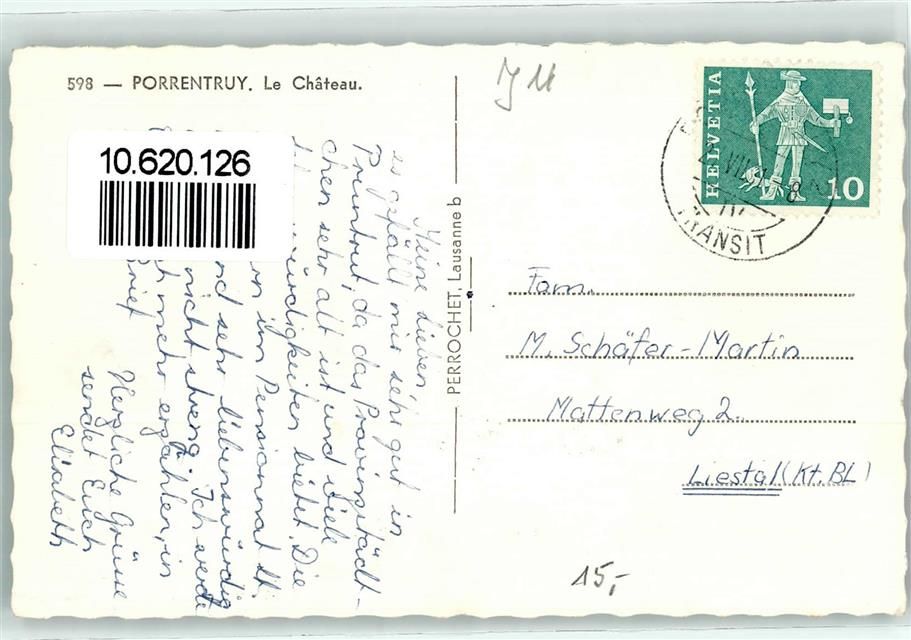 598 — PORRENTRUY. Le Château.
10.620.126
Meine Lieben,
es gefällt mir sehr gut in
Pruntrut, da das Provinzstädt-
chen sehr alt ist und viele
würdigkeiten bietet. Die
im Pensionnat St.
sind sehr liebenswürdig
nicht streng. Ich werde
mehr erzählen, in
Brief
Herzliche Grüsse
sendet Euch
Elisabeth
PERROCHET, Lausanne b
J M
HELVETIA
10
TRANSIT
Fam.
M. Schäfer-Martin
Mattenweg 2.
Liestal (Kt. BL)
15,-